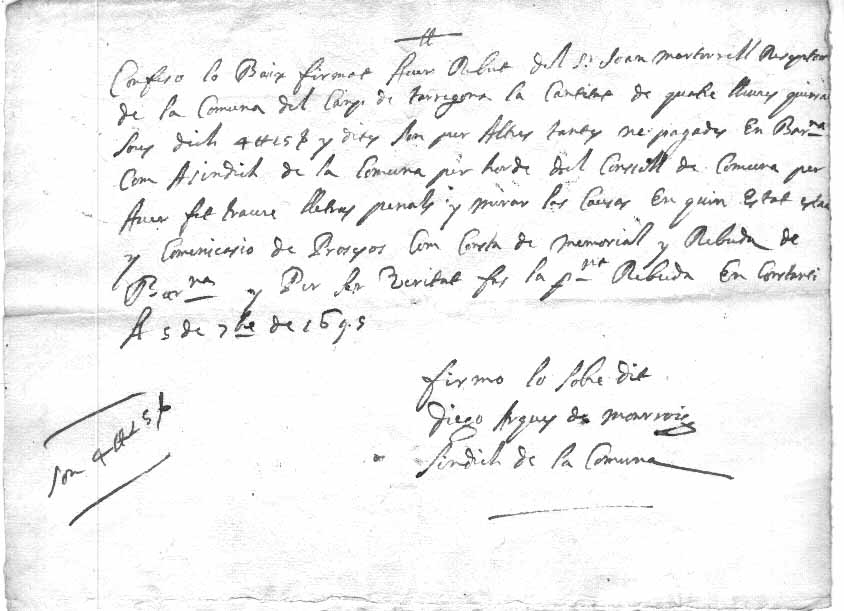 Confeso lo Baix firmat Auer Rebut del Sr Joan martorrell Reseptor
de la Comuna del Camp de tarragona la Cantitat de quatre lliures quinse
sous dich 4 ll 15 s y dites son per Altres tantes ne pagades En Barna
Com A sindich de la Comuna per horde del Consill de Comuna per
Auer fet traure lletras penals y mirar las Causas En quin Estat estan
y Comenicasio de Prosesos Com Consta de memorial y Rebuda de
Barna y Per ser Veritat fas la pnt Rebuda En Constanti
A 5 de 7bre de 1695
firmo lo sobre dit
Diego Argues de
Sindich de la Comuna
Son 4 ll 15 s